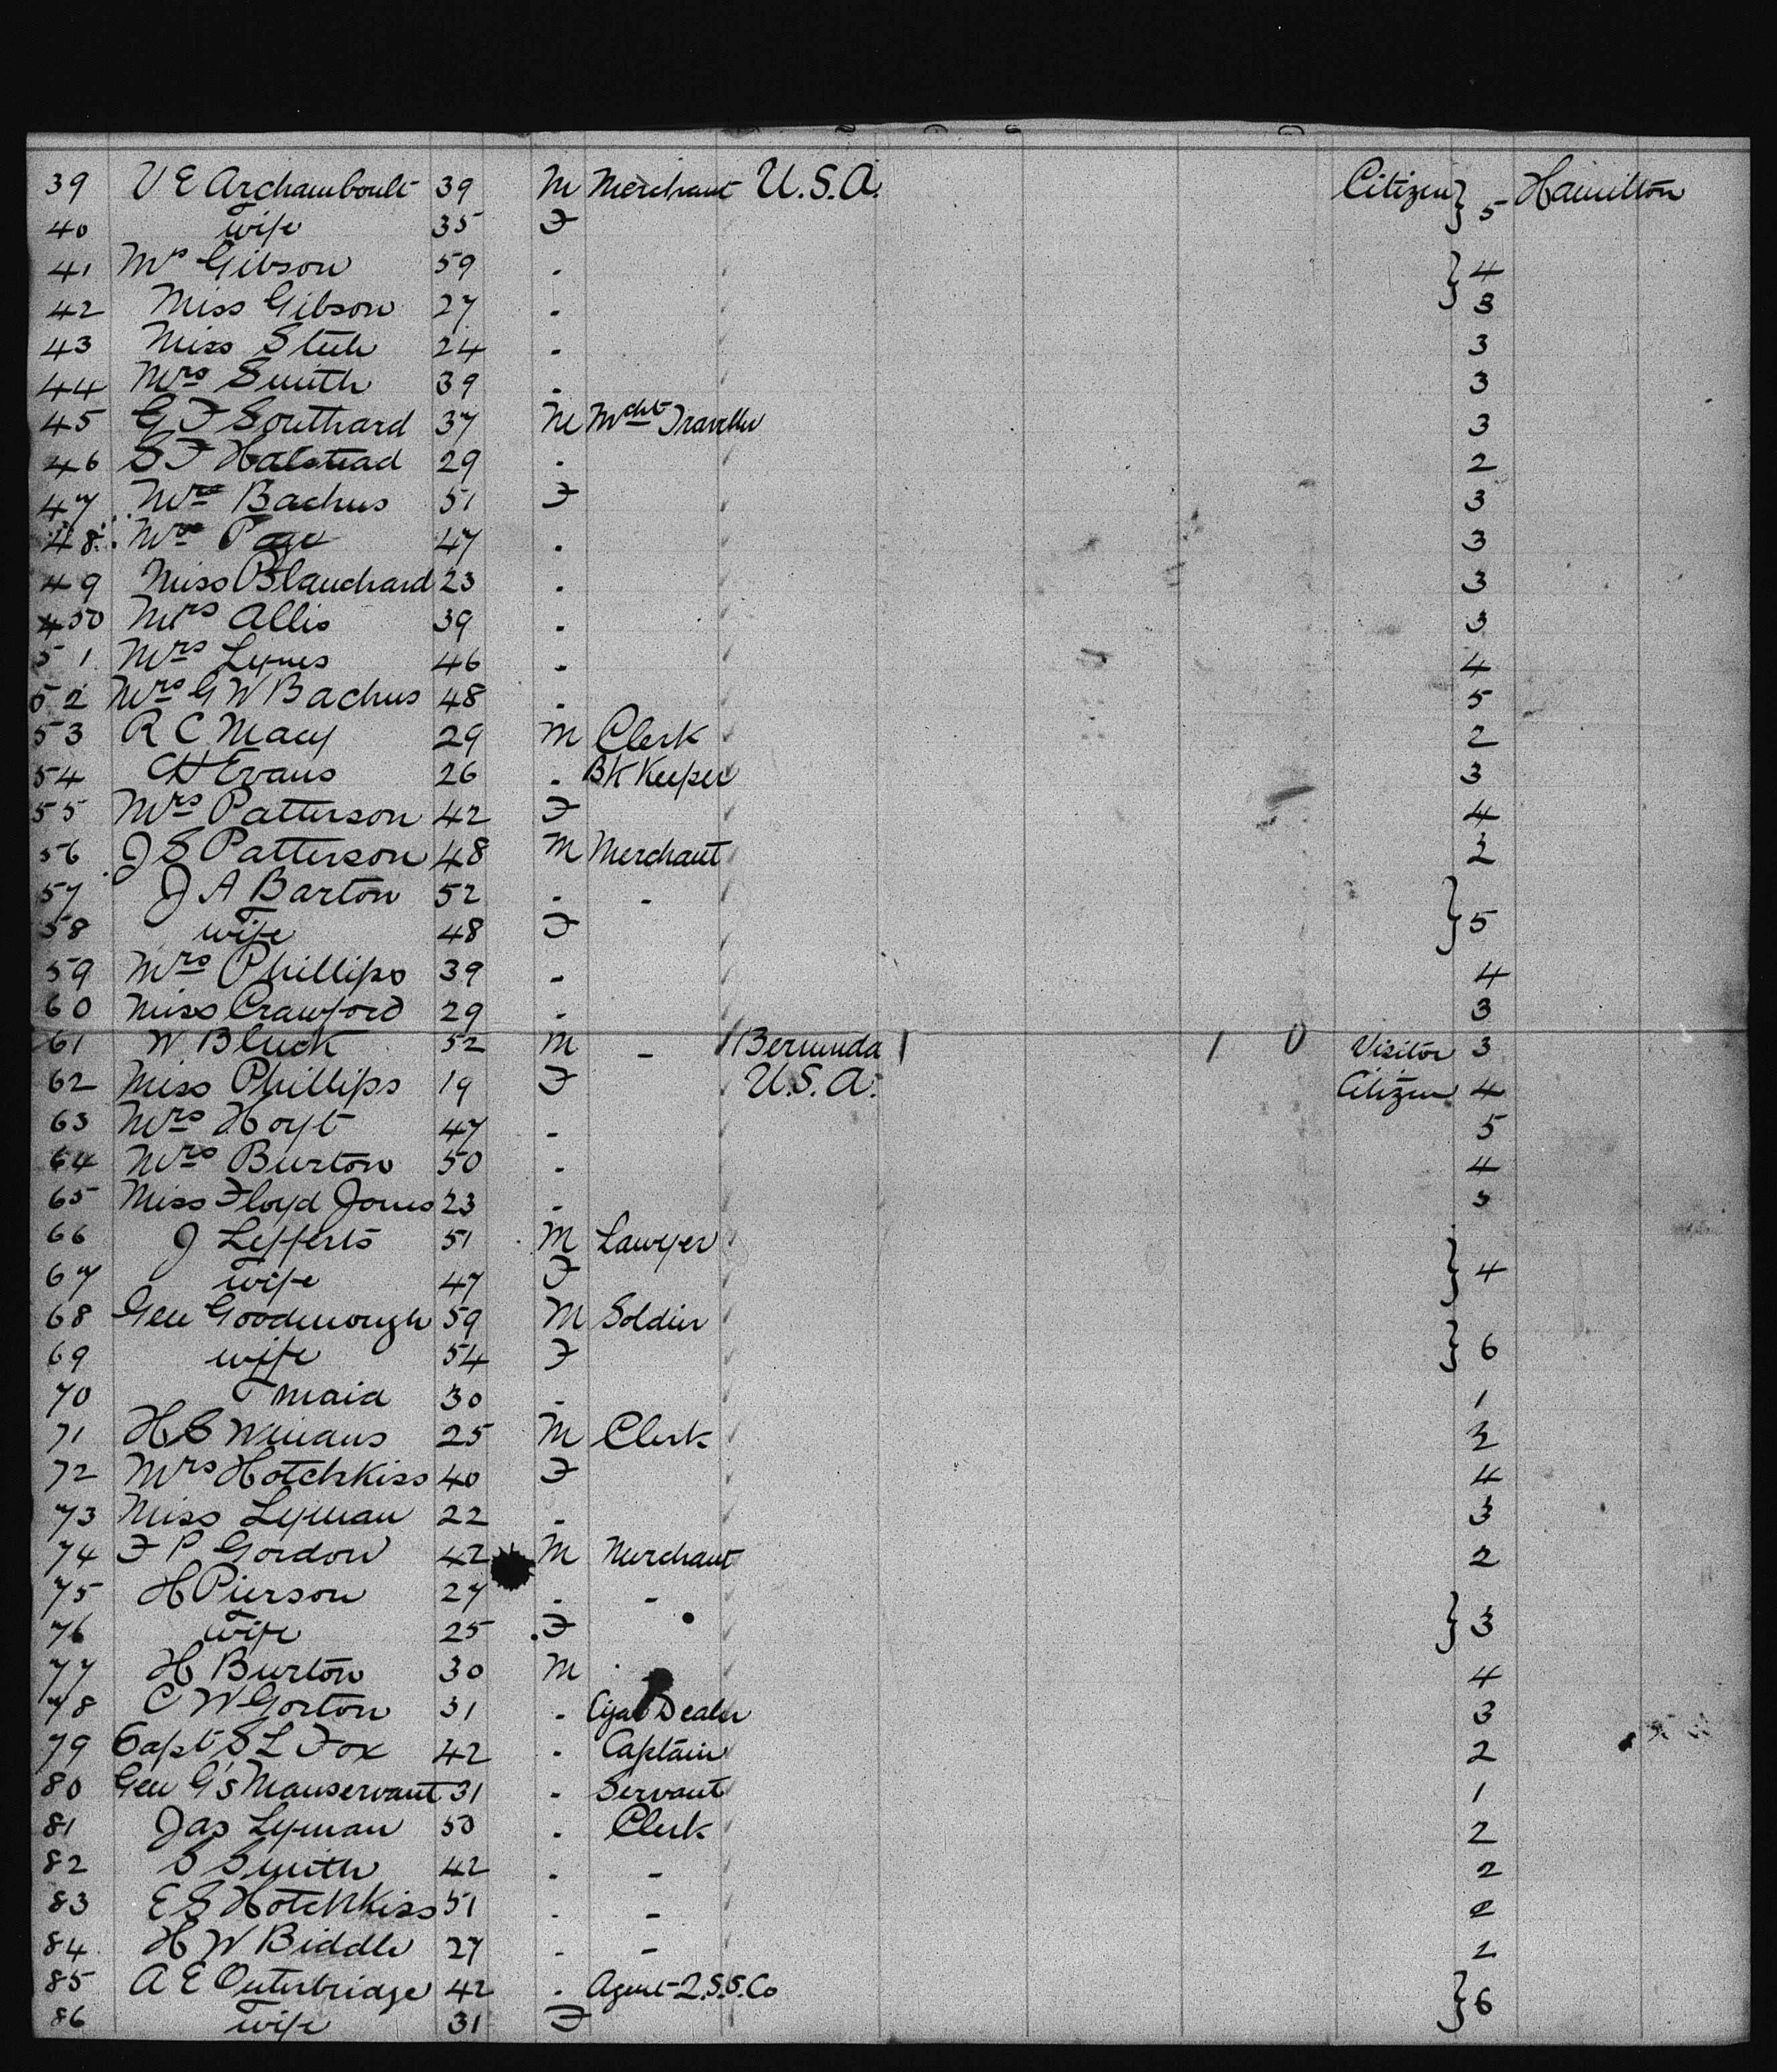 39 V E Archamboult 39 M Merchant U.S.A. Citizen } 5 Hamilton
40 Wife 35 F
41 Mrs Gibson 59 . } 4
42 Miss Gibson 27 . 3
43 Miss 24 . 3
44 Mrs Smith 39 . 3
45 G F Southard 37 M Mcht Traveller 3
46 S F Halstead 29 . 2
47 Mrs Bachus 51 F 3
48 Mrs Page 47 . 3
49 Miss Blanchard 23 . 3
50 Mrs Allis 39 . 3
51 Mrs Lynes 46 . 4
52 Mrs G W Bachus 48 . 5
53 R C Macy 29 M Clerk 2
54 C H Evans 26 . BK Keeper 3
55 Mrs Patterson 42 F 4
56 J S Patterson 48 M Merchant 2
57 J A Barton 52 . - } 5
58 Wife 48 F
59 Mrs Phillips 39 - 4
60 Miss Crawford 29 - 3
61 W Bluck 52 M - Bermuda 1 1 0 Visitor 3
62 Miss Phillips 19 F U.S.A. Citizen 4
63 Mrs Hoyt 47 - 5
64 Mrs Burton 50 - 4
65 Miss Floyd Jones 23 - 3
66 J Lefferts 51 M Lawyer } 4
67 Wife 47 F
68 Gen Goodenough 59 M Soldier } 6
69 Wife 54 F
70 " maid 30 - 1
71 H S Winans 25 M Clerk 2
72 Mrs Hotchkiss 40 F 4
73 Miss Lyman 22 - 3
74 F P Gordon 42 M Merchant 2
75 H Pierson 27 . - } 3
76 Wife 25 F
77 H Burton 30 M - 4
78 C W Gorton 31 - Cigar Dealer 3
79 Capt S L Fox 42 - Captain 2
80 Gen G's Manservant 31 - Servant 1
81 Jas Lyman 50 . Clerk 2
82 S Smith 42 . - 2
83 E S Hotchkiss 51 . - 2
84 H W Biddle 27 . - 2
85 A E Outerbridge 42 . Agent Q.S.S.Co } 6
86 Wife 31 F